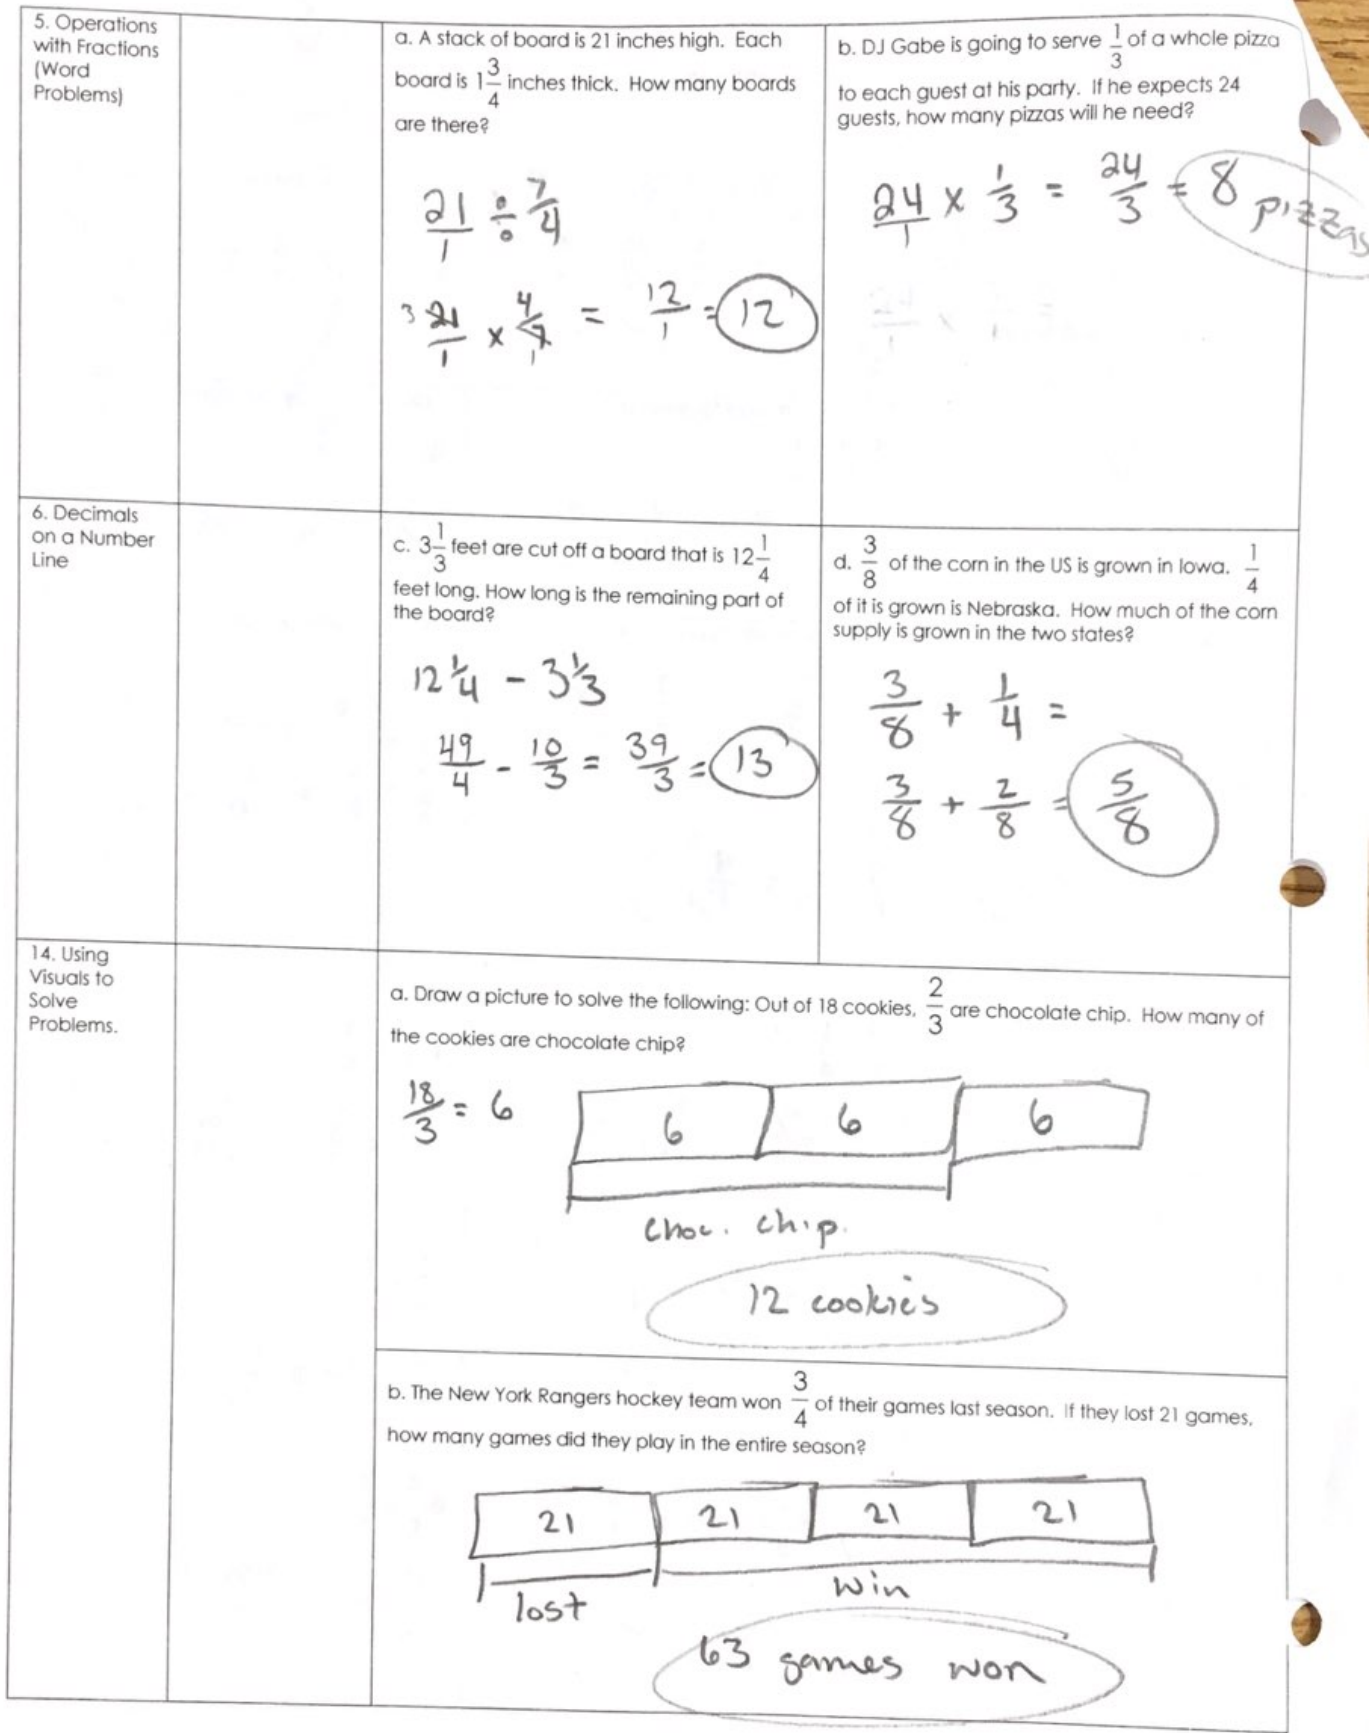 5. Operations
with Fractions
(Word
Problems)
a. A stack of board is 21 inches high. Each
board is 1 3/4 inches thick. How many boards
are there?
21/1 ÷ 7/4
3 21/1 × 4/7 1 = 12/1 = 12
b. DJ Gabe is going to serve 1/3 of a whole pizza
to each guest at his party. If he expects 24
guests, how many pizzas will he need?
24/1 × 1/3 = 24/3 = 8 pizzas
6. Decimals
on a Number
Line
c. 3 1/3 feet are cut off a board that is 12 1/4
feet long. How long is the remaining part of
the board?
12 1/4 - 3 1/3
49/4 - 10/3 = 39/3 = 13
d. 3/8 of the corn in the US is grown in Iowa. 1/4
of it is grown is Nebraska. How much of the corn
supply is grown in the two states?
3/8 + 1/4 =
3/8 + 2/8 = 5/8
14. Using
Visuals to
Solve
Problems.
a. Draw a picture to solve the following: Out of 18 cookies, 2/3 are chocolate chip. How many of
the cookies are chocolate chip?
18/3 = 6
6 6 6
choc. chip.
12 cookies
b. The New York Rangers hockey team won 3/4 of their games last season. If they lost 21 games,
how many games did they play in the entire season?
21 21 21 21
lost win
63 games won